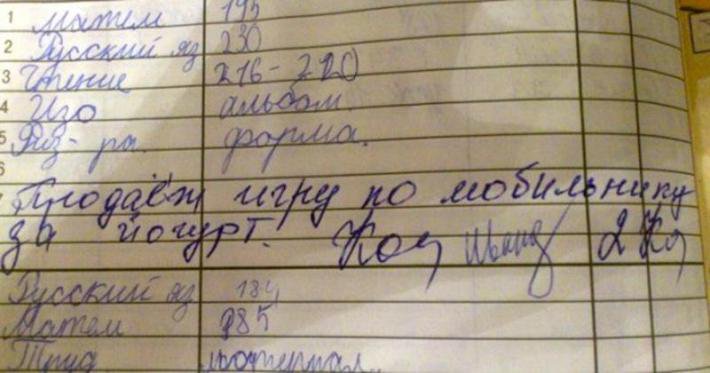 1 Матем 195
2 Русский яз 230
3 Чтение 216-220
4 Изо альбом
5 Физ-ра. форма.
6
Продаёт игру по мобильнику
за йогурт.
Русский яз 184
Матем 985
Труд материал.